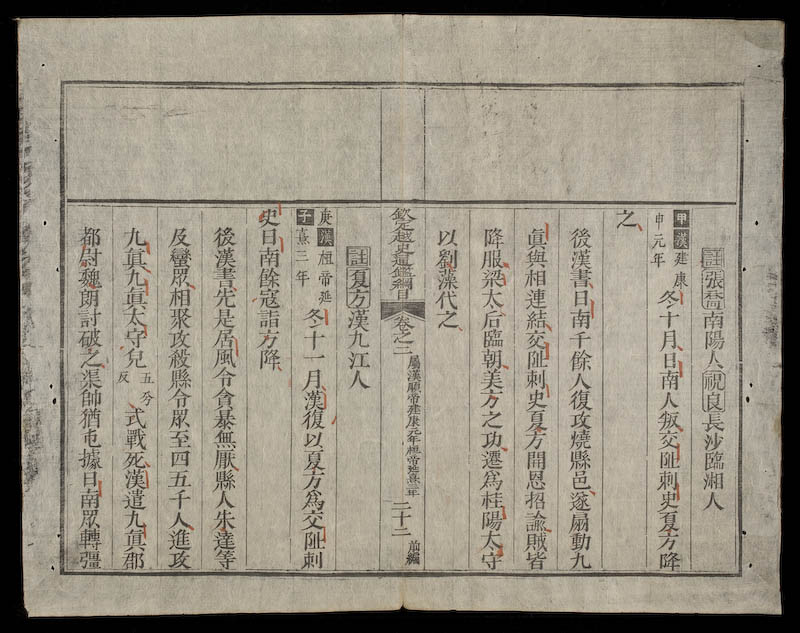 註張喬南陽人祝良長沙臨湘人
甲申漢建康元年冬十月日南人叛交趾刺史夏方降
之
後漢書日南千餘人復攻燒縣邑遂扇動九
眞與相連結交趾刺史夏方開恩招諭賊皆
降服梁太后臨朝美方之功遷爲桂陽太守
以劉藻代之
欽定越史通鑑綱目 卷之二 屬漢順帝建康元年桓帝延熹三年 二十二 前編
註夏方漢九江人
庚子漢桓帝延熹三年冬十一月漢復以夏方爲交趾刺
史日南餘寇詣方降
後漢書先是居風令貪暴無厭縣人朱達等
及蠻眾相聚攻殺縣令眾至四五千人進攻
九眞九眞太守兒五兮反式戰死漢遣九眞都
都尉魏朗討破之渠帥猶屯據日南眾轉彊